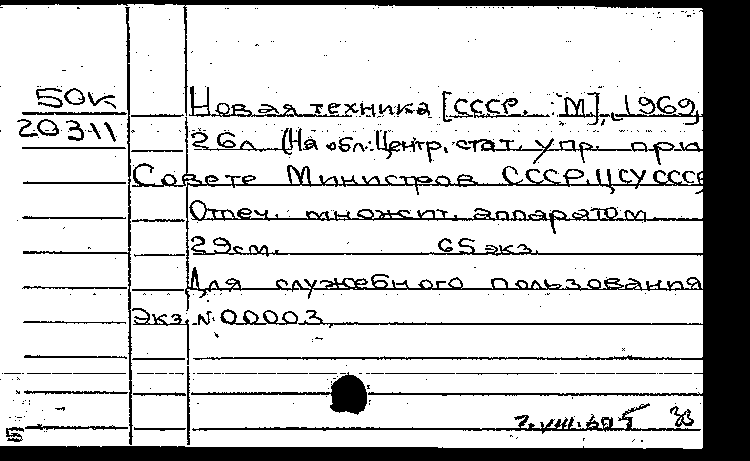 50К
20311
Новая техника [СССР. М], 1969,
26л. (На обл.: Центр. стат. упр. при
Совете Министров СССР. ЦСУ СССР
Отпеч. множит. аппаратом
29см. 65 экз.
Для служебного пользования
Экз. № 00003.
5